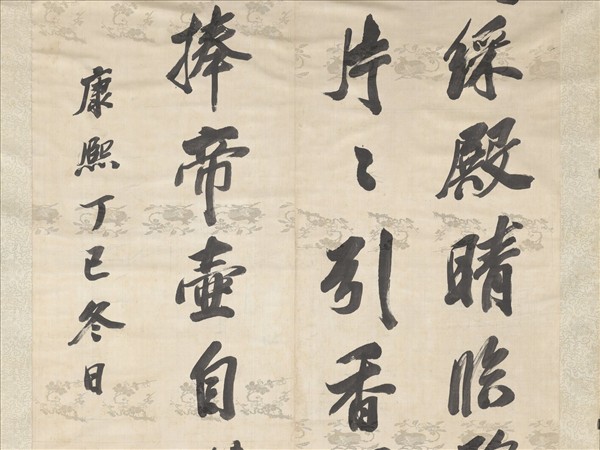 綵殿晴臨
片〻引香
捧帝壺自
康熙丁巳冬日